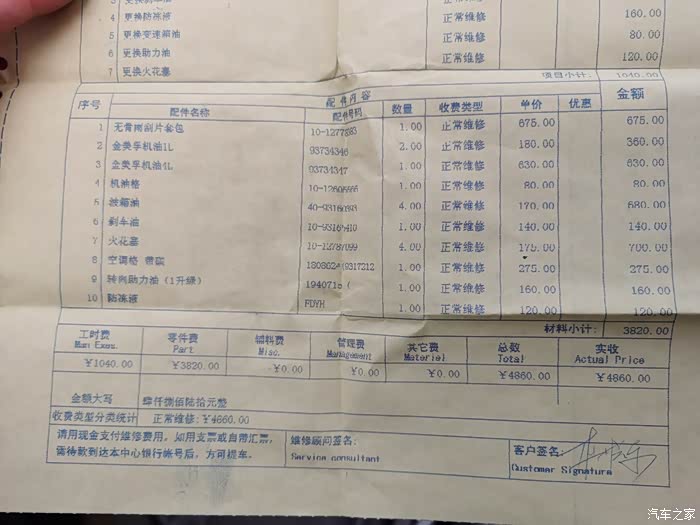 4 更换防冻液 正常维修 160.00
5 更换变速箱油 正常维修 80.00
6 更换助力油 正常维修 120.00
7 更换火花塞 正常维修
项目小计: 1040.00
配件内容
序号 配件名称 配件号码 数量 收费类型 单价 优惠 金额
1 无骨雨刮片套包 1.00 正常维修 675.00 675.00
2 金美孚机油1L 93734346 2.00 正常维修 180.00 360.00
3 金美孚机油4L 93734347 1.00 正常维修 630.00 630.00
4 机油格 1.00 正常维修 80.00 80.00
5 波箱油 4.00 正常维修 170.00 680.00
6 刹车油 1.00 正常维修 140.00 140.00
7 火花塞 10-12787099 4.00 正常维修 175.00 700.00
8 空调格 带碳 1.00 正常维修 275.00 275.00
9 转向助力油（1升绿） 1.00 正常维修 160.00 160.00
10 防冻液 FDYH 1.00 正常维修 120.00 120.00
材料小计: 3820.00
工时费 零件费 辅料费 管理费 其它费 总数 实收
Man Exes. Part Misc. Management Material Total Actual Price
¥1040.00 ¥3820.00 ¥0.00 ¥0.00 ¥0.00 ¥4860.00 ¥4860.00
金额大写 肆仟捌佰陆拾元整
收费类型分类统计 正常维修:¥4860.00
请用现金支付维修费用，如用支票或自带汇票， 维修顾问签名: 客户签名:
需待款到达本中心银行帐号后，方可提车。 Service consultant Customer Signature
汽车之家